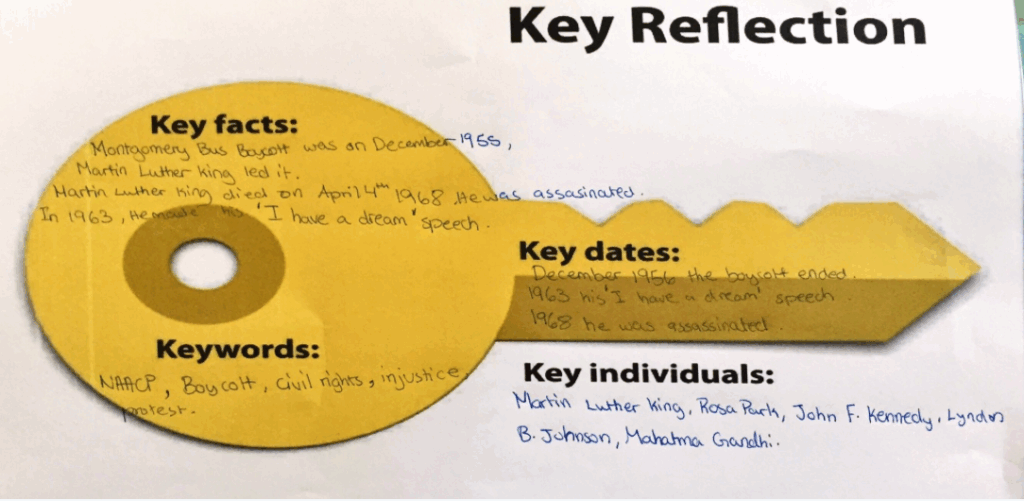 Key Reflection
Key facts:
Montgomery Bus Boycott was on December 1955,
Martin Luther king led it.
Martin Luther king died on April 4th 1968. He was assasinated.
In 1963, He made his 'I have a dream' speech.
Key dates:
December 1956 the boycott ended.
1963 his 'I have a dream' speech.
1968 he was assassinated.
Keywords:
NAACP, Boycott, civil rights, injustice,
protest.
Key individuals:
Martin Luther King, Rosa Park, John F. Kennedy, Lyndon
B. Johnson, Mahatma Gandhi.